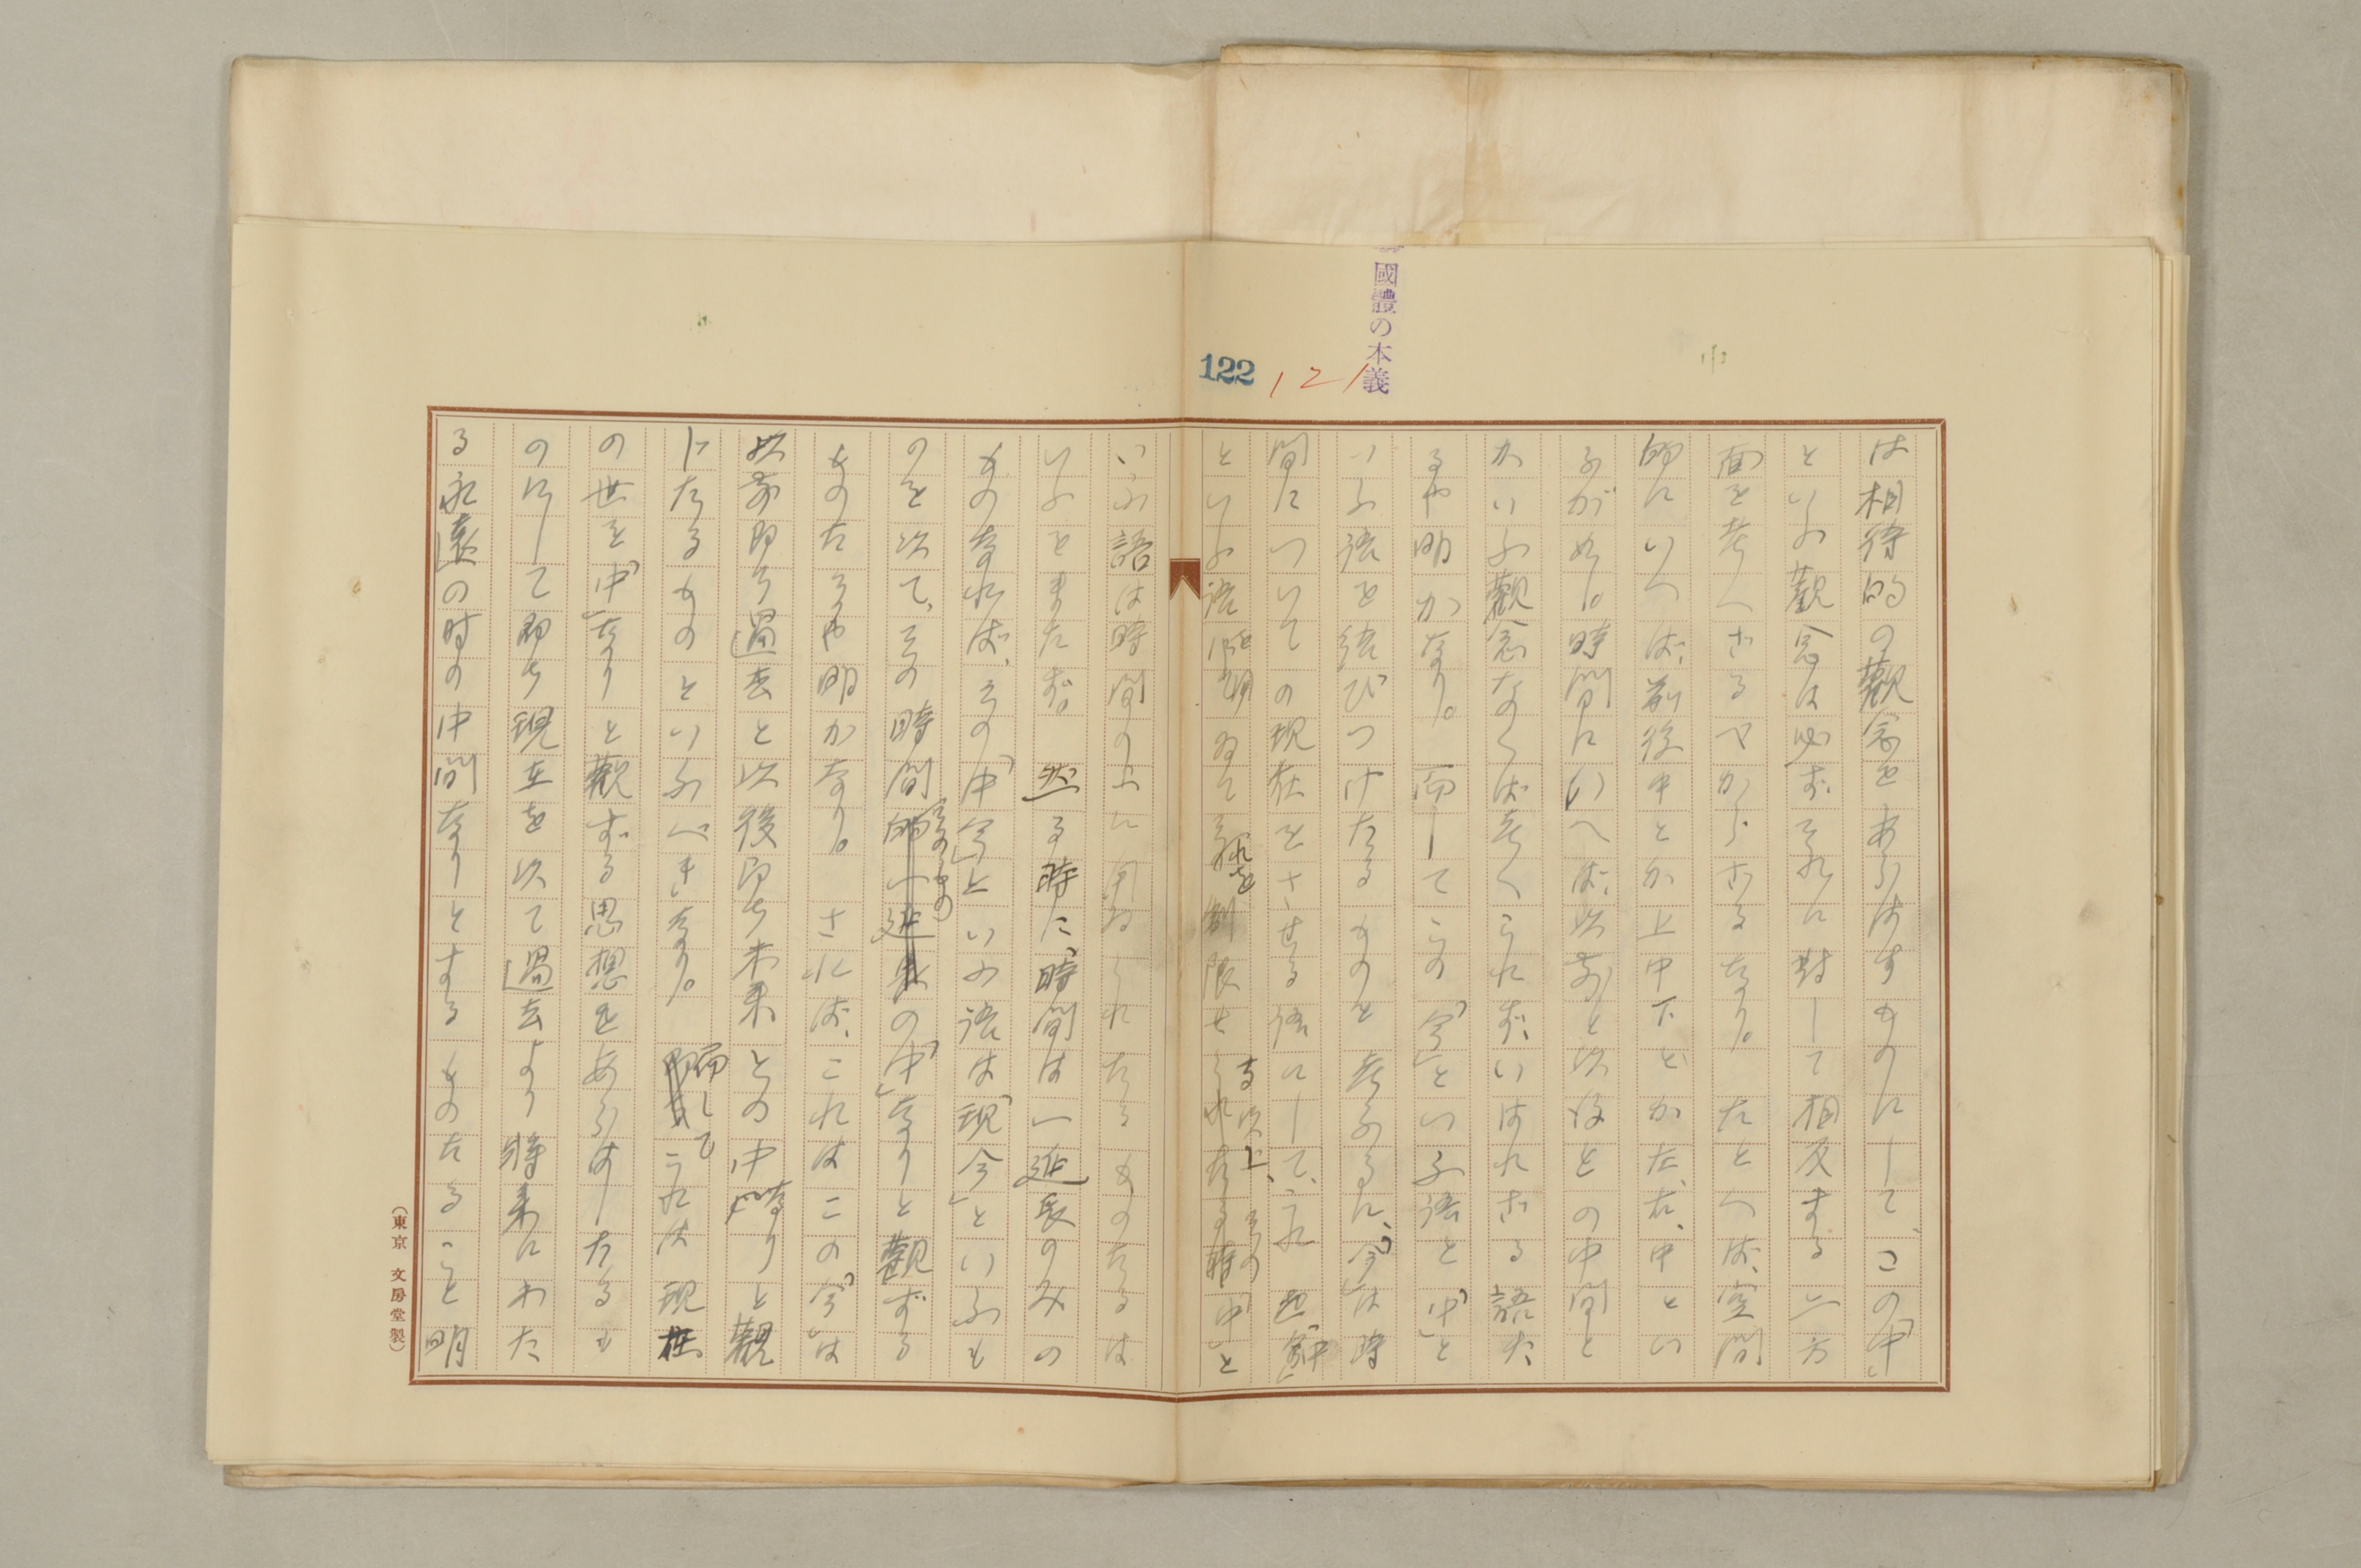 國體の本義
122
121
中
は相待的の觀念をあらはすものにして、この「中」
といふ觀念は必ずそれに對して相反する二方
面を考へざるべからざるなり。たとへば、空間
的にいへば、前後中とか上中下とか左、右、中とい
ふが如し。時間にいへば、以前と以後との中間と
かいふ觀念なくば考へられず、いはれざる語た
るや明かなり。而してこの「今」といふ語と「中」と
いふ語を結びつけたるものを考ふるに、「今」は時
間についての現在をさせる語にして、これ
といふ語 限せ 「中」と
いふ語は時間の上に用ゐられたるものたるは
いふをまたず。然る時に、時間は一延長のみの
ものなれば、その「中今」といふ語は「現今」といふも
のを以て、その時間 の「中」なりと觀ずる
ものたるや明かなり。されば、これはこの「今」は
以前即ち過去と以後即ち未來との中なりと觀
じたるものといふべきなり。而してこれは現在
の世を「中」なりと觀ずる思想をあらはしたるも
のにして即ち現在を以て過去より將來にわた
る永遠の時の中間なりとするものたること明
(東京 文房堂製)